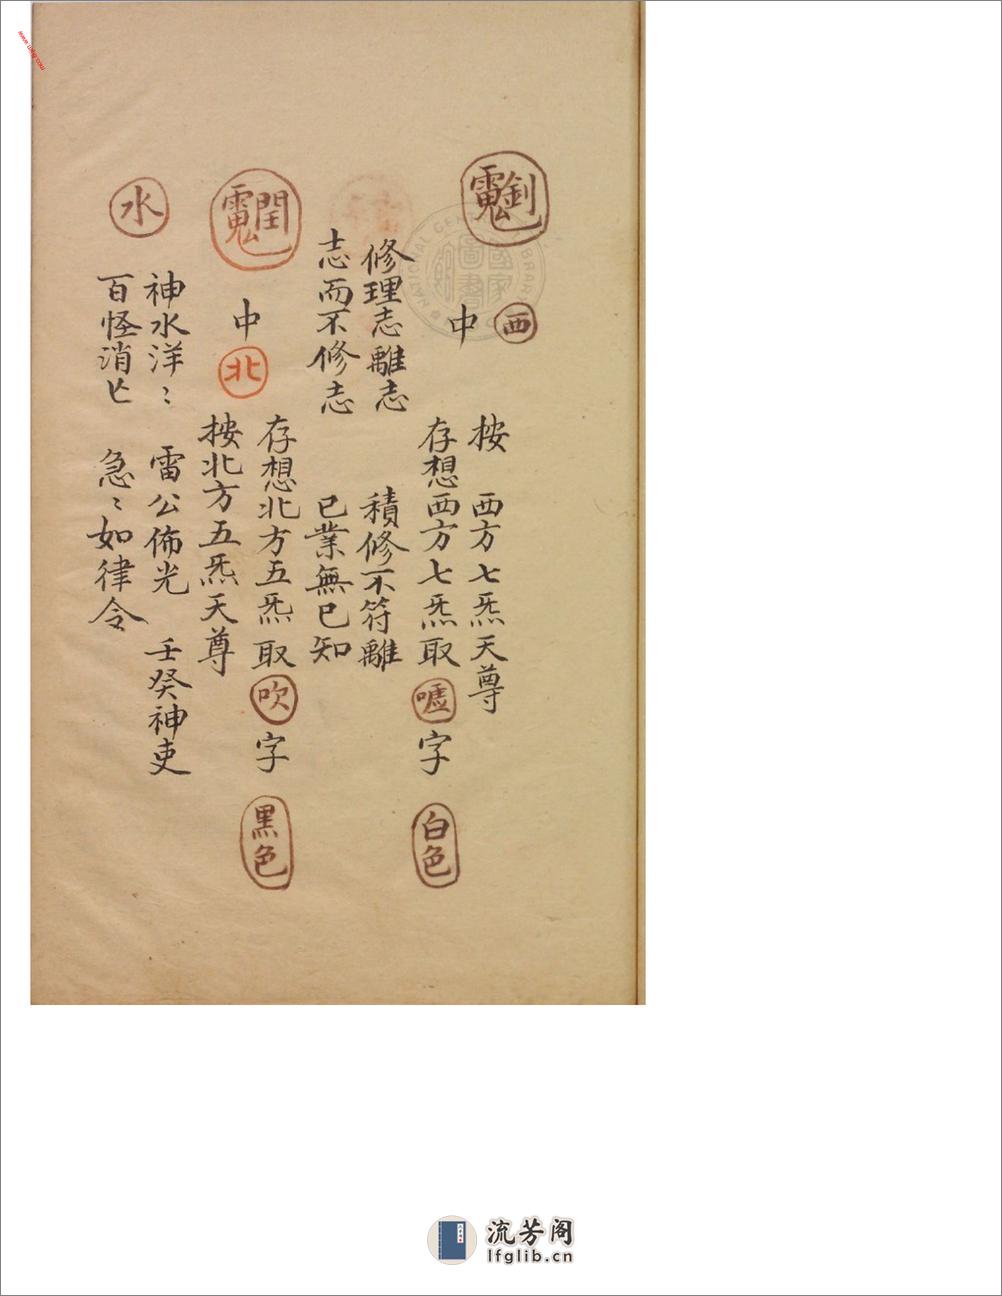 西
中
按 西方七炁天尊
存想西方七炁取噓字 白色
修理志離志 積修不符離
志而不修志 已業無已知
中北
存想北方五炁取吹字 黑色
按北方五炁天尊
水
神水洋〻 雷公佈光 壬癸神吏
百怪消亡 急〻如律令
流芳阁
lfglib.cn